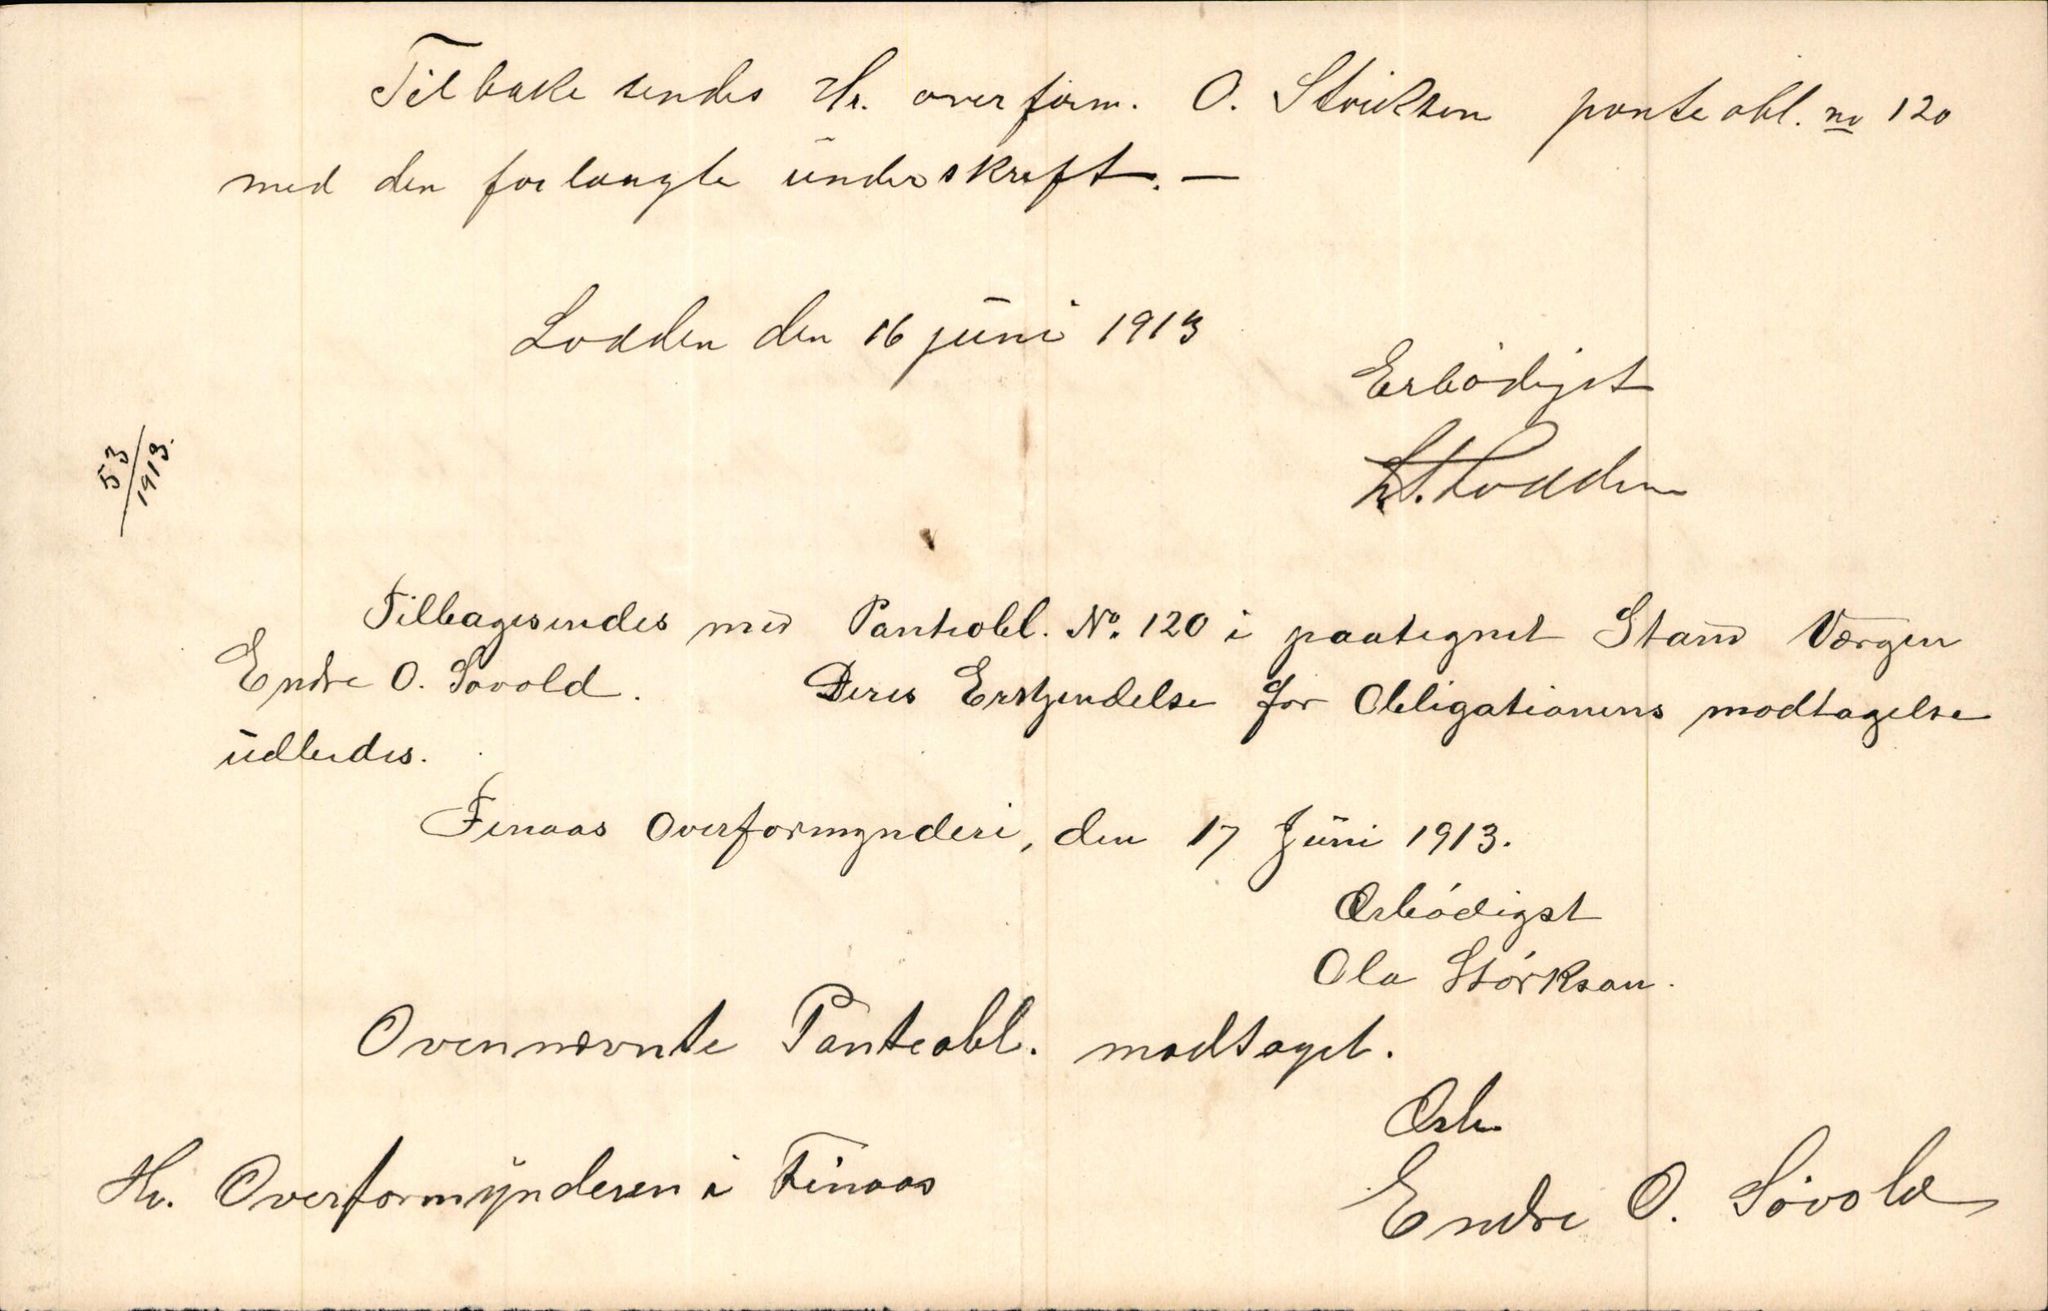 Tilbake sendes Hr. overform. O. Störksen pante obl. no 120
med den forlangte underskrift. —
Lodden den 16 juni 1913
Erbödigst
Lodden
53/1913.
Tilbagesendes med Panteobl. No. 120 i paategnet Stand Værgen
Endre O. Søvold. Deres Erkjendelse for Obligationens modtagelse
udbedes.
Finaas Overformynderi, den 17 Juni 1913.
Ærbódigst
Ola Störksen.
Ovennævnte Panteobl. modtaget.
Ærb.
Hr. Overformynderen i Finaas
Endre O. Sövold